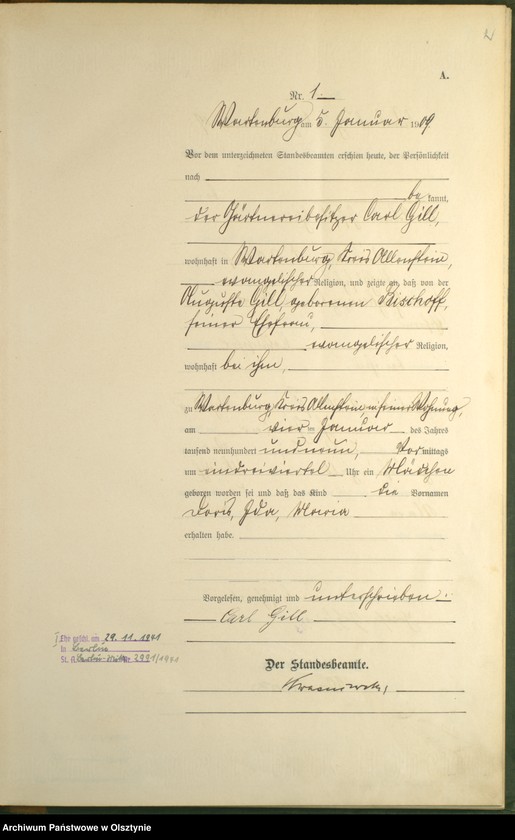 A.
Nr. 1
Wartenburg am 5. Januar 1909
Vor dem unterzeichneten Standesbeamten erschien heute, der Persönlichkeit
nach
bekannt,
der Gärtnereibesitzer Carl Gill,
wohnhaft in Wartenburg, Kreis Allenstein,
evangelischer Religion, und zeigte an, daß von der
Auguste Gill, geborenen Bischoff,
seiner Ehefrau,
evangelischer Religion,
wohnhaft bei ihm,
zu Wartenburg, Kreis Allenstein, in seiner Wohnung,
am vier ten Januar des Jahres
tausend neunhundert und neun, Vormittags
um eindreiviertel Uhr ein Mädchen
geboren worden sei und daß das Kind die Vornamen
Doris, Ida, Maria
erhalten habe.
Vorgelesen, genehmigt und unterschrieben.
Carl Gill
Der Standesbeamte.
I Ehe geschl. am 29. 11. 1941
in Berlin
St. A. Berlin Nr. 2991/1941
Archiwum Państwowe w Olsztynie